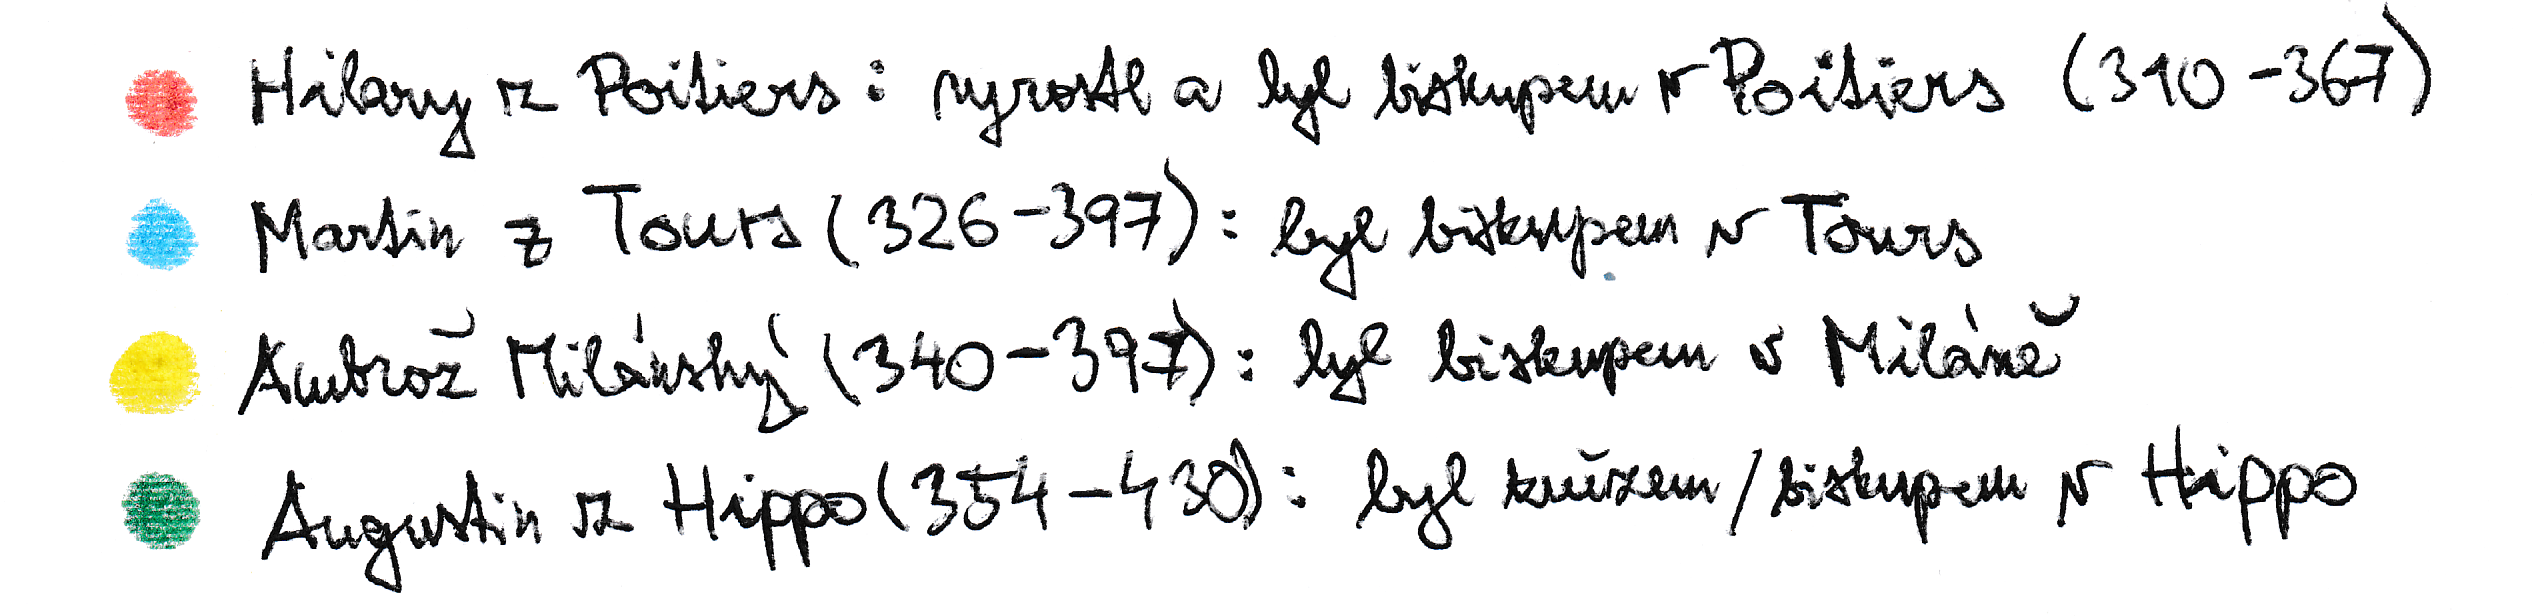 Hilary z Poitiers: vyrostl a byl biskupem v Poitiers (310-367)
Martin z Tours (326-397): byl biskupem v Tours
Ambrož Milánský (340-397): byl biskupem v Miláně
Augustin z Hippo (354-430): byl knězem/biskupem v Hippo